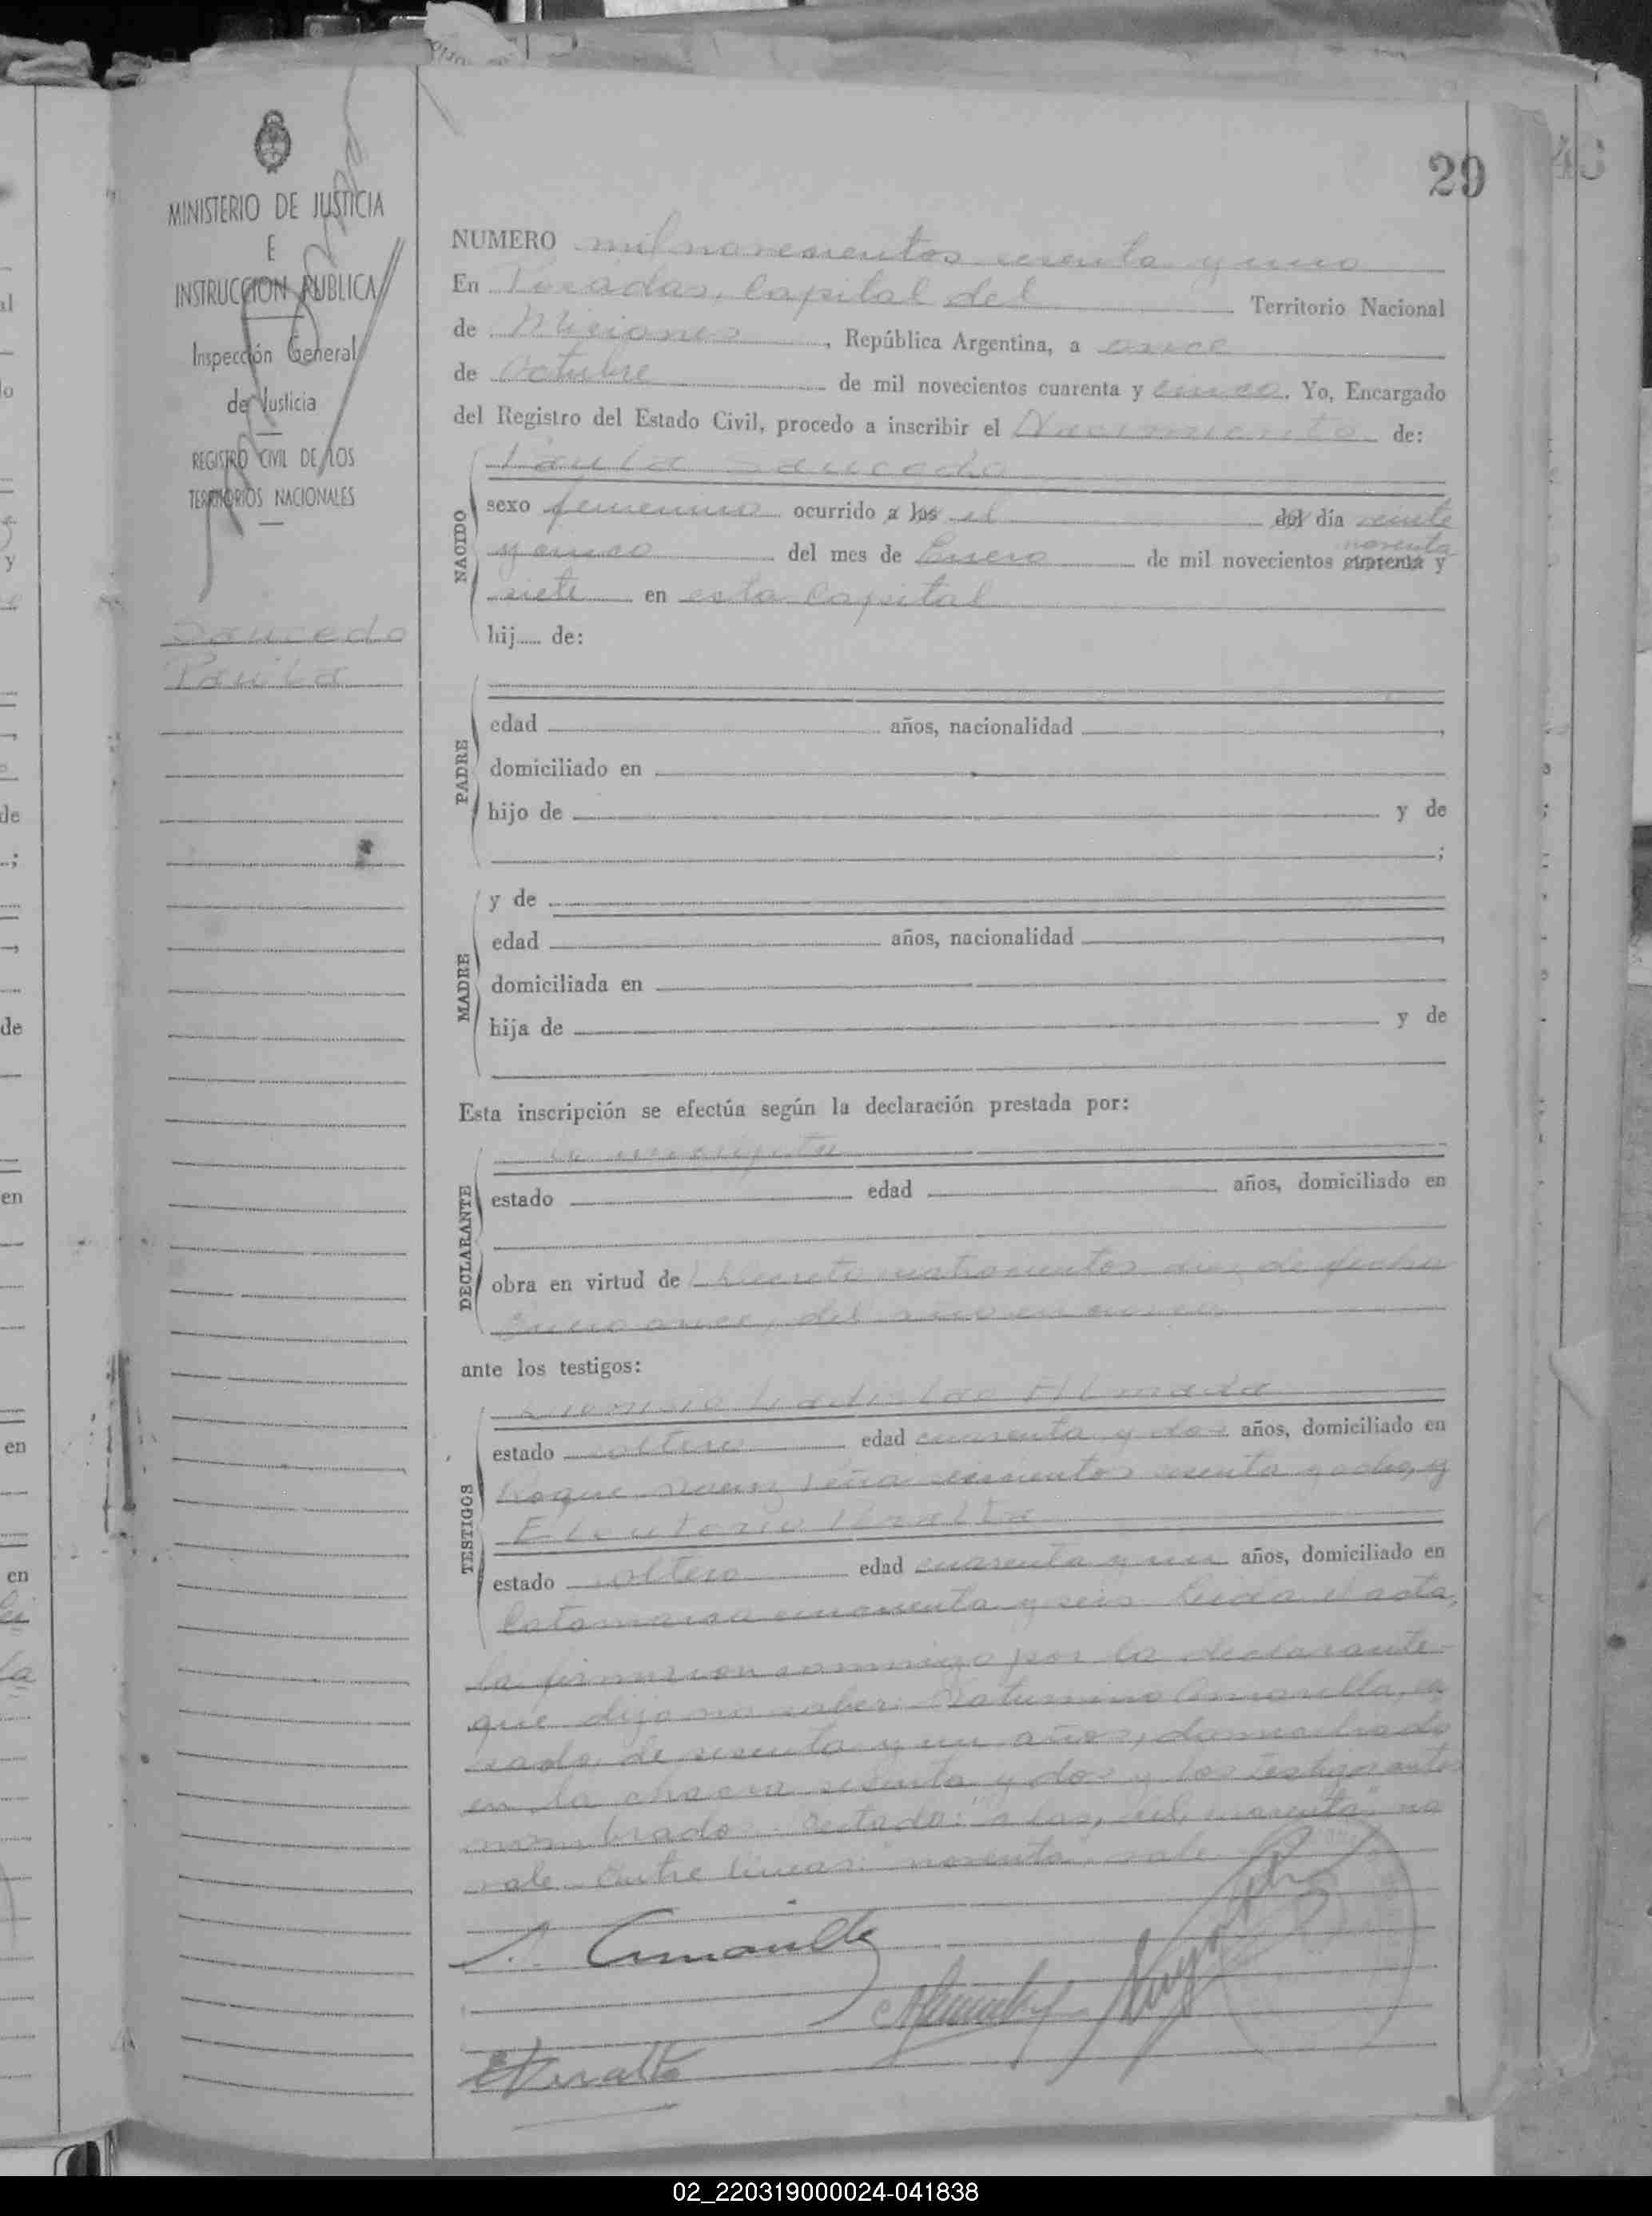 29
MINISTERIO DE JUSTICIA
E
INSTRUCCION PUBLICA
Inspección General
de Justicia
REGISTRO CIVIL DE LOS
TERRITORIOS NACIONALES
Saucedo
Paula
NUMERO mil novecientos sesenta y uno
En Posadas, Capital del Territorio Nacional
de Misiones, República Argentina, a once
de Octubre de mil novecientos cuarenta y cinco. Yo, Encargado
del Registro del Estado Civil, procedo a inscribir el Nacimiento de:
NACIDO
Paula Saucedo
sexo femenino ocurrido a las el del día veinte
y cinco del mes de Enero de mil novecientos cuarenta noventa y
siete en esta Capital
hij de:
PADRE
edad años, nacionalidad ,
domiciliado en
hijo de y de
;
MADRE
y de
edad años, nacionalidad ,
domiciliada en
hija de y de
Esta inscripción se efectúa según la declaración prestada por:
DECLARANTE
la inscripta
estado edad años, domiciliado en
obra en virtud de Decreto cuatrocientos diez de fecha
Enero once, del año en curso
ante los testigos:
TESTIGOS
Ladislao Almada
estado soltero edad cuarenta y dos años, domiciliado en
Roque Saenz Peña seiscientos sesenta y ocho, y
Eleuterio Peralta
estado soltero edad cuarenta y un años, domiciliado en
Catamarca cincuenta y seis. Leida el acta,
la firmaron conmigo por la declarante
que dijo no saber: Saturnino Amarilla, ca
sado, de sesenta y un años, domiciliado
en la chacra sesenta y dos y los testigos antes
nombrados. Testado: "a las, del, cuarenta" no
vale. Entre lineas: "noventa", vale.
S. Amarilla
E Peralta
02_220319000024-041838